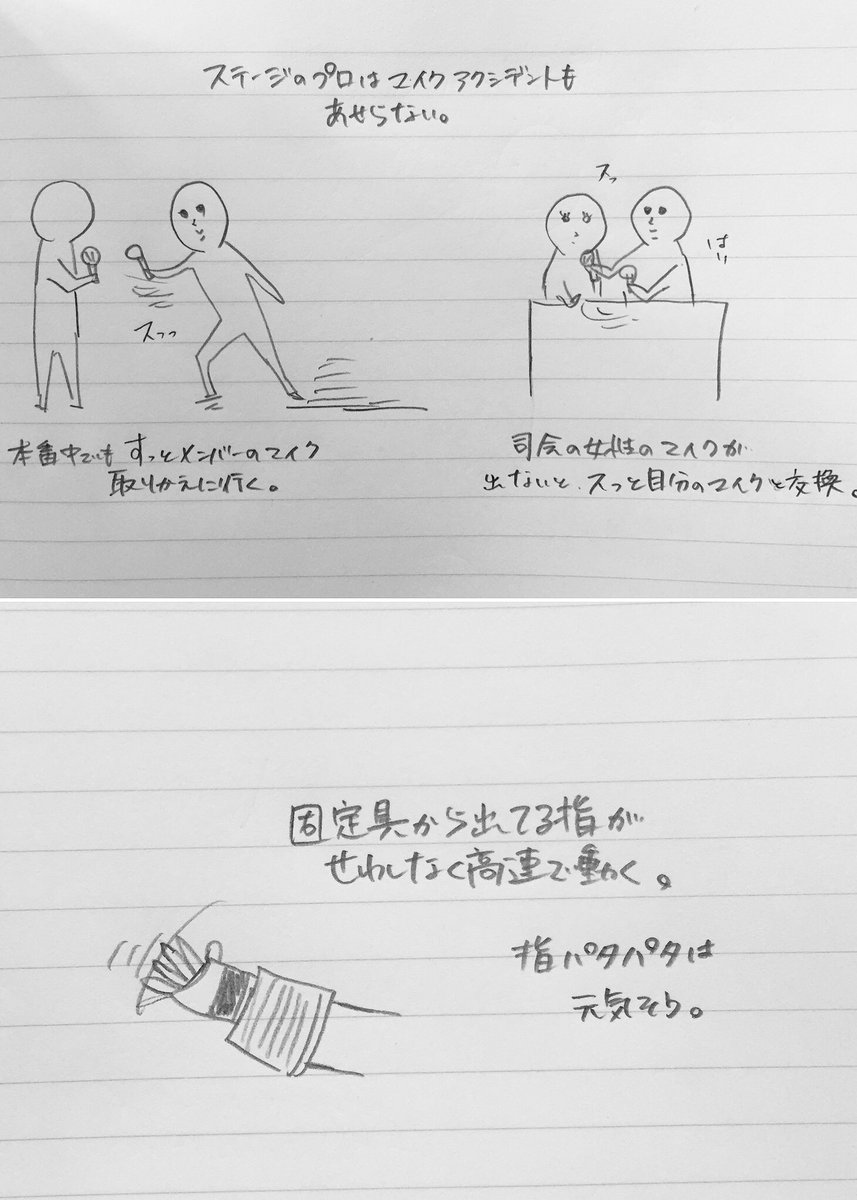 ステージのプロはマイクアクシデントも
あせらない。
スッ
はい
スッッ
本番中でもすっとメンバーのマイク
取りかえに行く。
司会の女性のマイクが
出ないと、スッと自分のマイクと交換。
固定具から出てる指が
せわしなく高速で動く。
指パタパタは
元気そう。